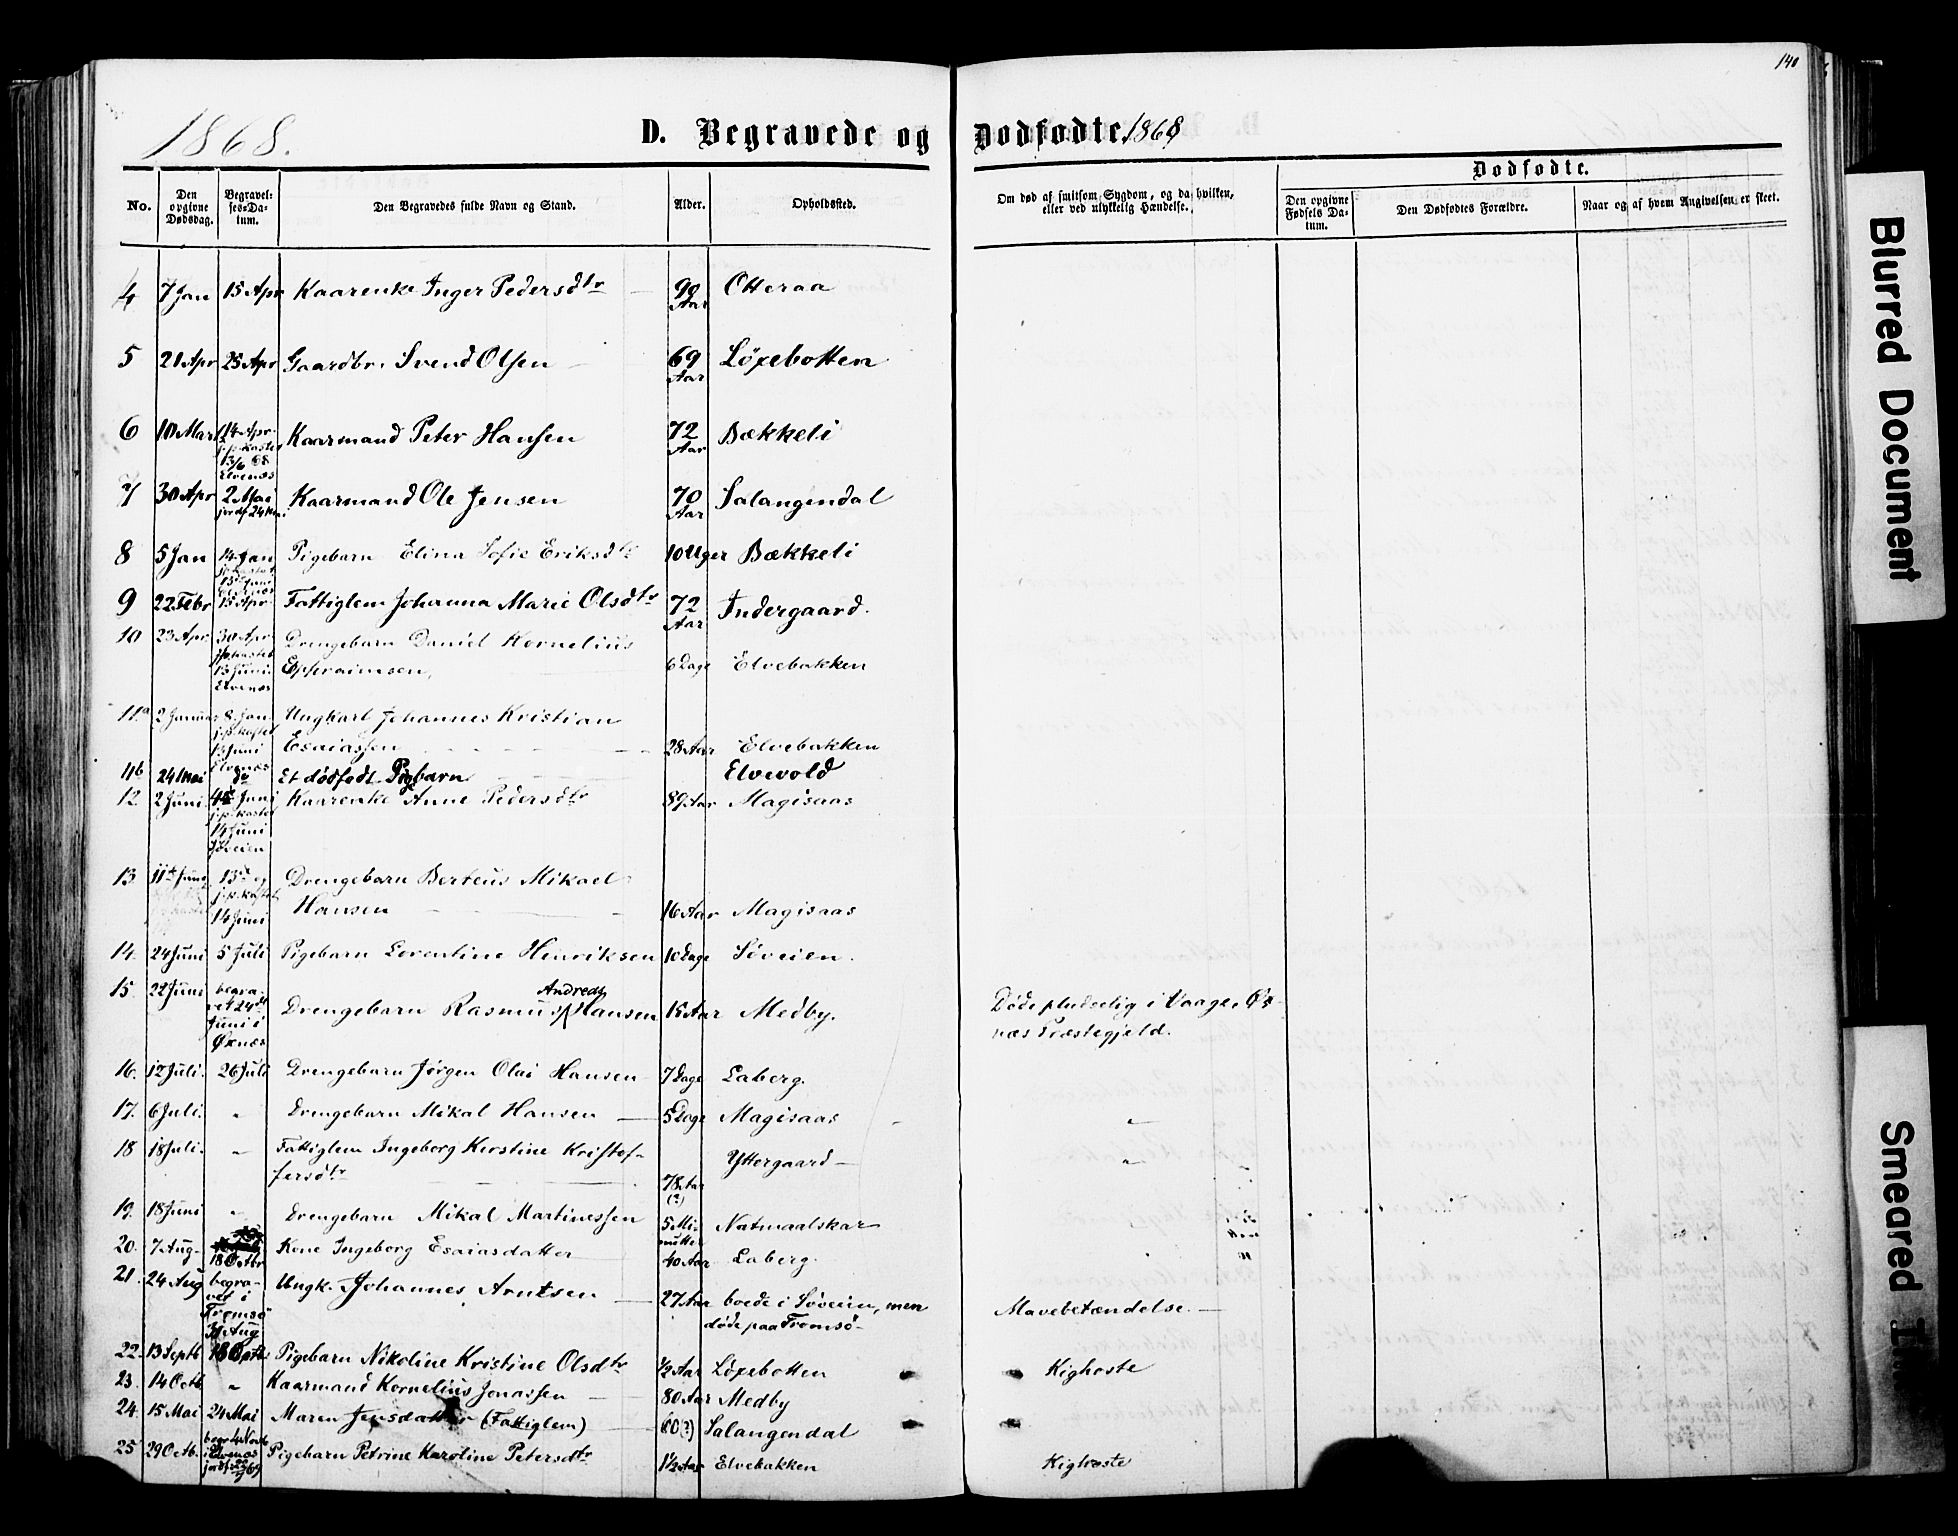 140
1868.
D. Begravede og Dødfødte 1868
Dødfødte.
No.
Den opgivne Dødsdag.
Begravelses-Datum.
Den Begravedes fulde Navn og Stand.
Alder.
Opholdssted.
Om død af smitsom Sygdom, og da hvilken, eller ved ulykkelig Hændelse.
Den opgivne Fødsels Datum.
Den Dødfødtes Forældre.
Naar og af hvem Angivelsen er skeet.
4 7 Jan 15 Apr Kaarenke Inger Pedersdtr 90 Aar Otteraa
5 21 Apr 25 Apr Gaardbr. Svend Olsen 69 Aar Löxebotten
6 10 Mart 14 Apr. j.p.kastet 13/6 68 Elvenæs Kaarmand Peter Hansen 72 Aar Bækkeli
7 30 Apr 2 Mai jordf 24 Mai Kaarmand Ole Jensen 70 Aar Salangendal
8 5 Jan 14 Jan j.p.kastet 13 Juni Elvenæs Pigebarn Elina Sofie Eriksdtr 10 Uger Bækkeli
9 22 Febr 15 Apr. Fattiglem Johanna Marie Olsdtr 72 Aar Indergaard.
10 23 Apr. 30 Apr. j.p.kastet 13 Juni Elvenæs Drengebarn Daniel Kornelius
Epfraimsen, 6 Dage Elvebakken
11a 2 Januar 8. Jan. j.p.kastet 13 Juni Elvenæs Ungkarl Johannes Kristian
Esaiassen 28 Aar Elvebakken
11b 24 Mai do Et dødfødt Pigbarn Elvevold
12. 2 Juni. Juni j.p.kastet 14 Juni Søveien Kaarenke Anne Pedersdtr 89 Aar Magisaas
13. 11te Juni 13de og j.p.kastet 14 Juni Drengebarn Berteus Mikael
Hansen 16 Aar Magisaas
14. 24 Juni 5 Juli Pigebarn Lorentine Henriksen 10 Dage Søveien.
15. 22 Juni begravet 24de Juni i Øxnæs Drengebarn Rasmus Andreas Hansen 15 Aar Medby. Døde pludselig i Vaage, Øx-
næs Præstegjeld.
16. 12 Juli. 26 Juli Drengebarn Jørgen Olai Hansen 7 Dage Laberg.
17. 6 Juli. " Drengebarn Mikal Hansen 5 Dage Magisaas "
18 18 Juli. " Fattiglem Ingeborg Kerstine Kristof-
fersdtr 78 Aar (?) Yttergaard "
19. 18 Juni " Drengebarn Mikal Martinessen 5 Minutter Natmaalskar
20. 7 Aug. 18 Octbr Kone Ingeborg Esaiasdatter 40 Aar Laberg.
21. 24 Aug begravet i Tromsø 31 Aug Ungk. Johannes Arntsen 27 Aar boede i Søveien, men
døde paa Tromsø Mavebetændelse.
22. 13 Septb 18 Octb Pigebarn Nikoline Kristine Olsdtr 1/2 Aar Löxebotten Kighoste
23. 14 Octb " Kaarmand Kornelius Jonassen 80 Aar Medby
24. 15 Mai 24 Mai Maren Jensdatter (Fattiglem) 60 (?) Salangendal
25 29 Octb. begr 4 Novb i Elvenæs Pigebarn Petrine Karoline Petersdtr 1 1/2 Aar Elvebakken Kighoste
Blurred Document
Smeared